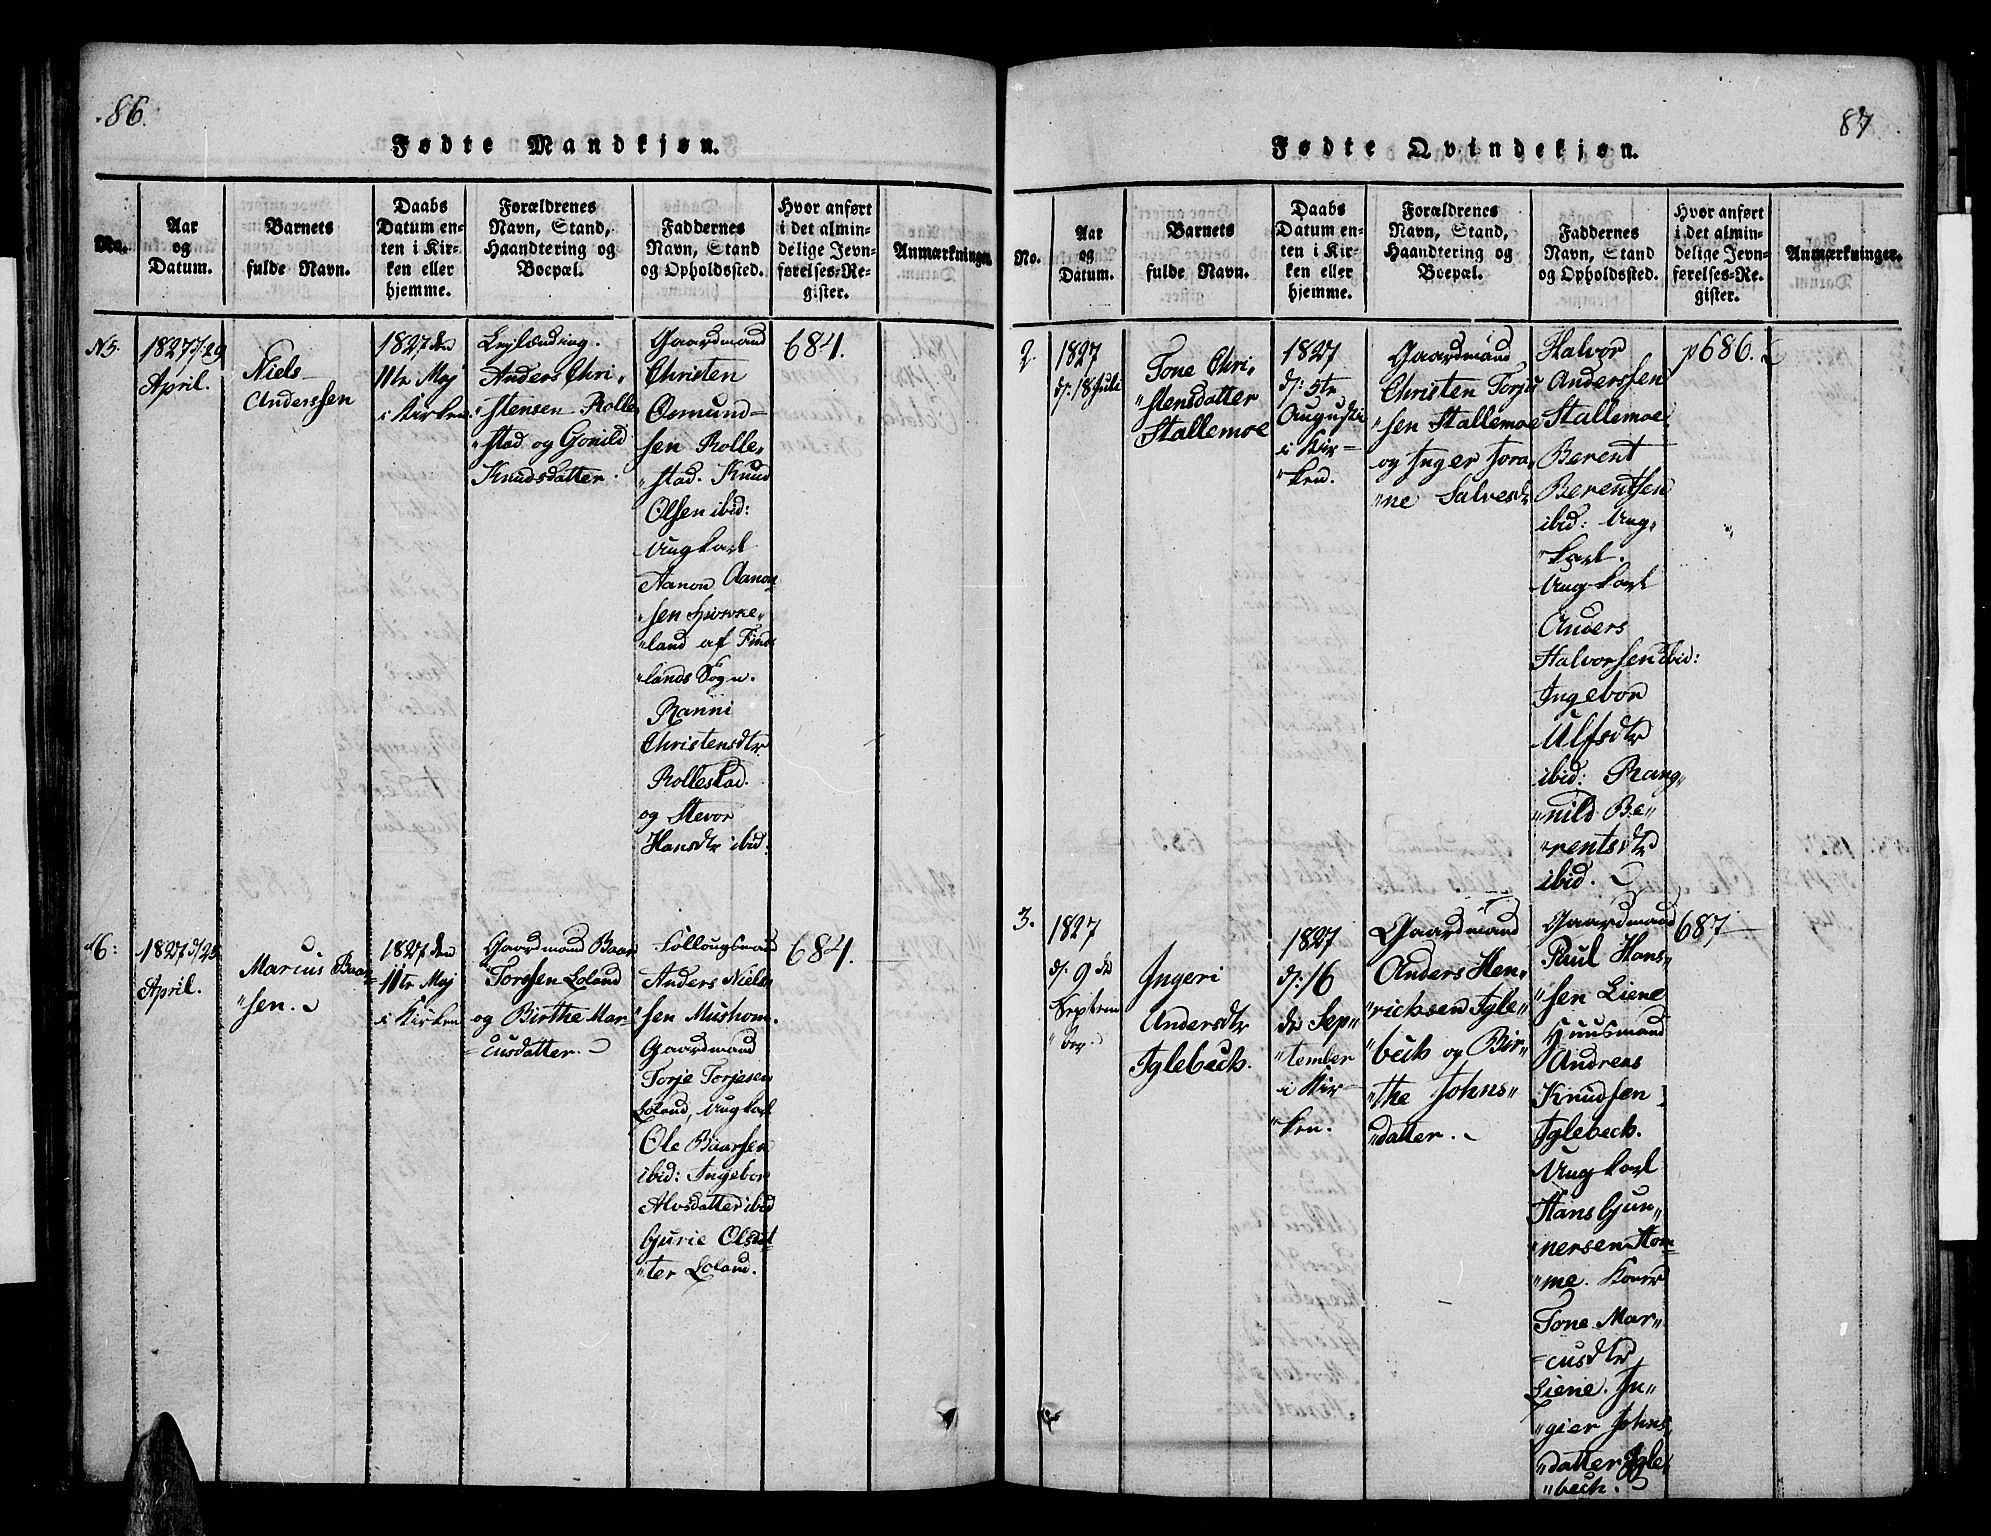 86.
Fødte Mandkjøn.
No.
Aar
og
Datum.
Barnets
fulde Navn.
Daabs
Datum en-
ten i Kir-
ken eller
hjemme.
Forældrenes
Navn, Stand,
Haandtering og
Boepæl.
Faddernes
Navn, Stand
og Opholdssted.
Hvor anført
i det almin-
delige Jevn-
førelses-Re-
gister.
Anmærkninger.
N5.
1827 d: 29
April.
Niels
Anderssen
1827 den
11te Maj
i Kirken
Leylænding.
Anders Chri„
„stensen Rolle„
„stad og Gonild
Knudsdatter.
Gaardmand
Christen
Osmund-
sen Rolle„
„stad. Knud
Olsen ibid:
Ungkarl
Aanon Aanon„
„sen
„land af Find„
„lands Sogn.
Ranni
Christensdtr
Rollestad.
og Stevor
Hansdtr ibid.
684.
6:
1827 d: 25
April.
Marius Baar„
„sen.
1827 den
11te Maj
i Kirken
Gaardmand Baar
Torssen Loland
og Birthe Mar„
cusdatter.
Anders Niels„
sen Mushom.
Gaardmand
Torje Torjesen
Loland, Ungkarl
Ole Baarsen
ibid: Ingebor
Alvsdatter ibid
Gurie Olsdat„
„ter Loland.
684.
87
Fødte Qvindekjøn.
No.
Aar
og
Datum.
Barnets
fulde Navn.
Daabs
Datum en-
ten i Kir-
ken eller
hjemme.
Forældrenes
Navn, Stand,
Haandtering og
Boepæl.
Faddernes
Navn, Stand
og Opholdssted.
Hvor anført
i det almin-
delige Jevn-
førelses-Re-
gister.
Anmærkninger.
2.
1827
d: 18 Juli
Tone Chri„
„stensdatter
Stallemoe
1827
d: 5te
Augusti
i Kir-
„ken.
Gaardmand
Christen Torju„
„sen Stallemoe
og Inger Jora„
„ne Salvesdtr
Halvor
Anderssen
Stallemoe.
Berent
Berentsen
ibid: Ung„
„karl.
Ungkarl
Anders
Halvorsen ibid:
Ingebor
Ulfsdtr
ibid: Rang„
„nild Be„
„rentsdtr
ibid.
p 686.
3.
1827
d: 9de
Septem
„ber.
Ingeri
Andersdtr
Iglebech.
1827
d: 16
de Sep„
„tember
i Kir-
„ken.
Gaardmand
Anders Hen„
„richsen Igle„
„bech og Bir„
„the Johns„
„datter.
Gaardmand
Paul Hans„
„sen Liene
Huusmand
Andreas
Knudsen
Iglebech.
Ungkarl
Hans Gjun„
„nersen Hom„
„me. Kone
Tone Mar„
cusdtr
Liene. In„
„gier Johns„
„datter Igle„
„bech.
687